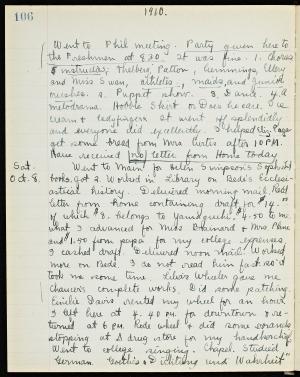 106
1910.
Went to Phil meeting. Party given here to
the Freshmen at 8.20. It was fine. 1. Chorus
& instructors; Thelberg, Patton, Cummings, Ellery
and Miss Swan, athletes, maids, and junior
crushes. 2. Puppet show. 3. Dance. 4. a
melodrama. Hobble Skirt or Does he care. ice
cream & ladyfingers. It went off splendidly
and everyone did excellently. I helped
get some from Mrs Curtis after 10 P.M.
Have received no letter from Home today
Sat.
Oct. 8.
Went to Main for with Simpson's
books, got 2. Worked in Library on Bede's Ecclesi-
astical history. Delivered morning mail. Recd
letter from home containing draft for $14.00
of which $8. belongs to Yamaguchi, $4.50 to me
what I advanced for Miss Brainard & Mrs
and $1.50 from papa for my college expenses.
I cashed draft. Delivered noon mail. Worked
more on Bede. I do not read him fast so it
took me some time. Lelia Wheeler gave me
Chaucer's complete works. Did some patching.
Emilie Davis rented my wheel for an hour.
I left here at 4.40 P.M. for downtown & re-
turned at 6 P.M. Rode wheel & did some errands
stopping at drug store for my handkerchief.
Went to college singing. Chapel. Studied
German Goethe's "Dichtung und Wahrheit"